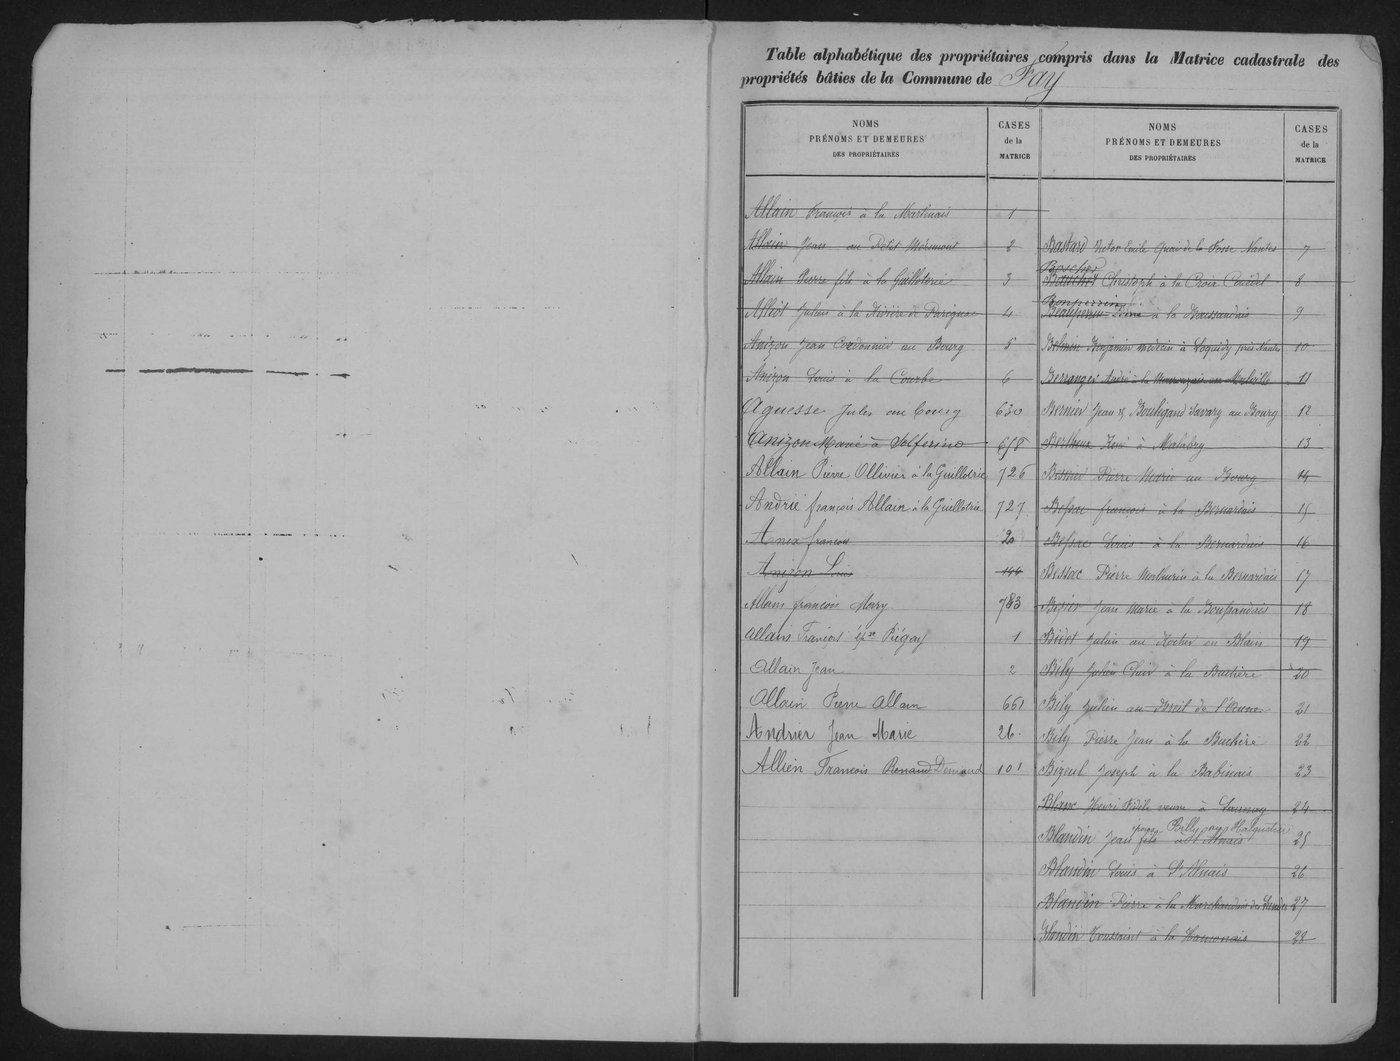 Table alphabétique des propriétaires compris dans la Matrice cadastrale des
propriétés bâties de la Commune de Fay
NOMS
PRÉNOMS ET DEMEURES
DES PROPRIÉTAIRES
CASES
de la
MATRICE
Allain François à la Martinais 1
Allain Jean au Petit 2
Allain Pierre fils à la Guilloterie 3
Alliot Julien à la Rivière de 4
Anizon Jean Cordonnier au Bourg 5
Anizon Louis à la Courbe 6
Aguesse Jules au bourg 630
Anizon Marie à Solferino 658
Allain Pierre Ollivier à la Guillotrie 726
Andrié françois Allain à la Guillotrie 727
françois 20
Anizon Louis 144
françois 783
Allain François 1
Allain Jean 2
Allain Pierre Allain 661
Andrier Jean Marie 26
Allien François Renaud 101
NOMS
PRÉNOMS ET DEMEURES
DES PROPRIÉTAIRES
CASES
de la
MATRICE
Bastard Victor Emile Quai de la Fosse Nantes 7
Christoph à la Croix 8
Bonperrin
à la 9
Benjamin médecin à près Nantes 10
Berranger André à la 11
Bernier Jean & Bouligand Savary au Bourg 12
René à 13
Pierre Marie au Bourg 14
Bessac françois à la Bernardais 15
Bessac Louis à la Bernardais 16
Bessac Pierre Mathurin à la Bernardais 17
Jean Marie à la 18
Bidet Julien au Rocher en Blain 19
Bily Julien à la Buchère 20
Bily Julien au Breil de 21
Bily Pierre Jean à la Buchère 22
Bizeul Joseph à la Babinais 23
Blanc Henri veuve à Launay 24
Blandin Jean fils 25
Blandin Louis à 26
Blandin Pierre à la Marchandais des Landes 27
Blandin Toussaint à la 28